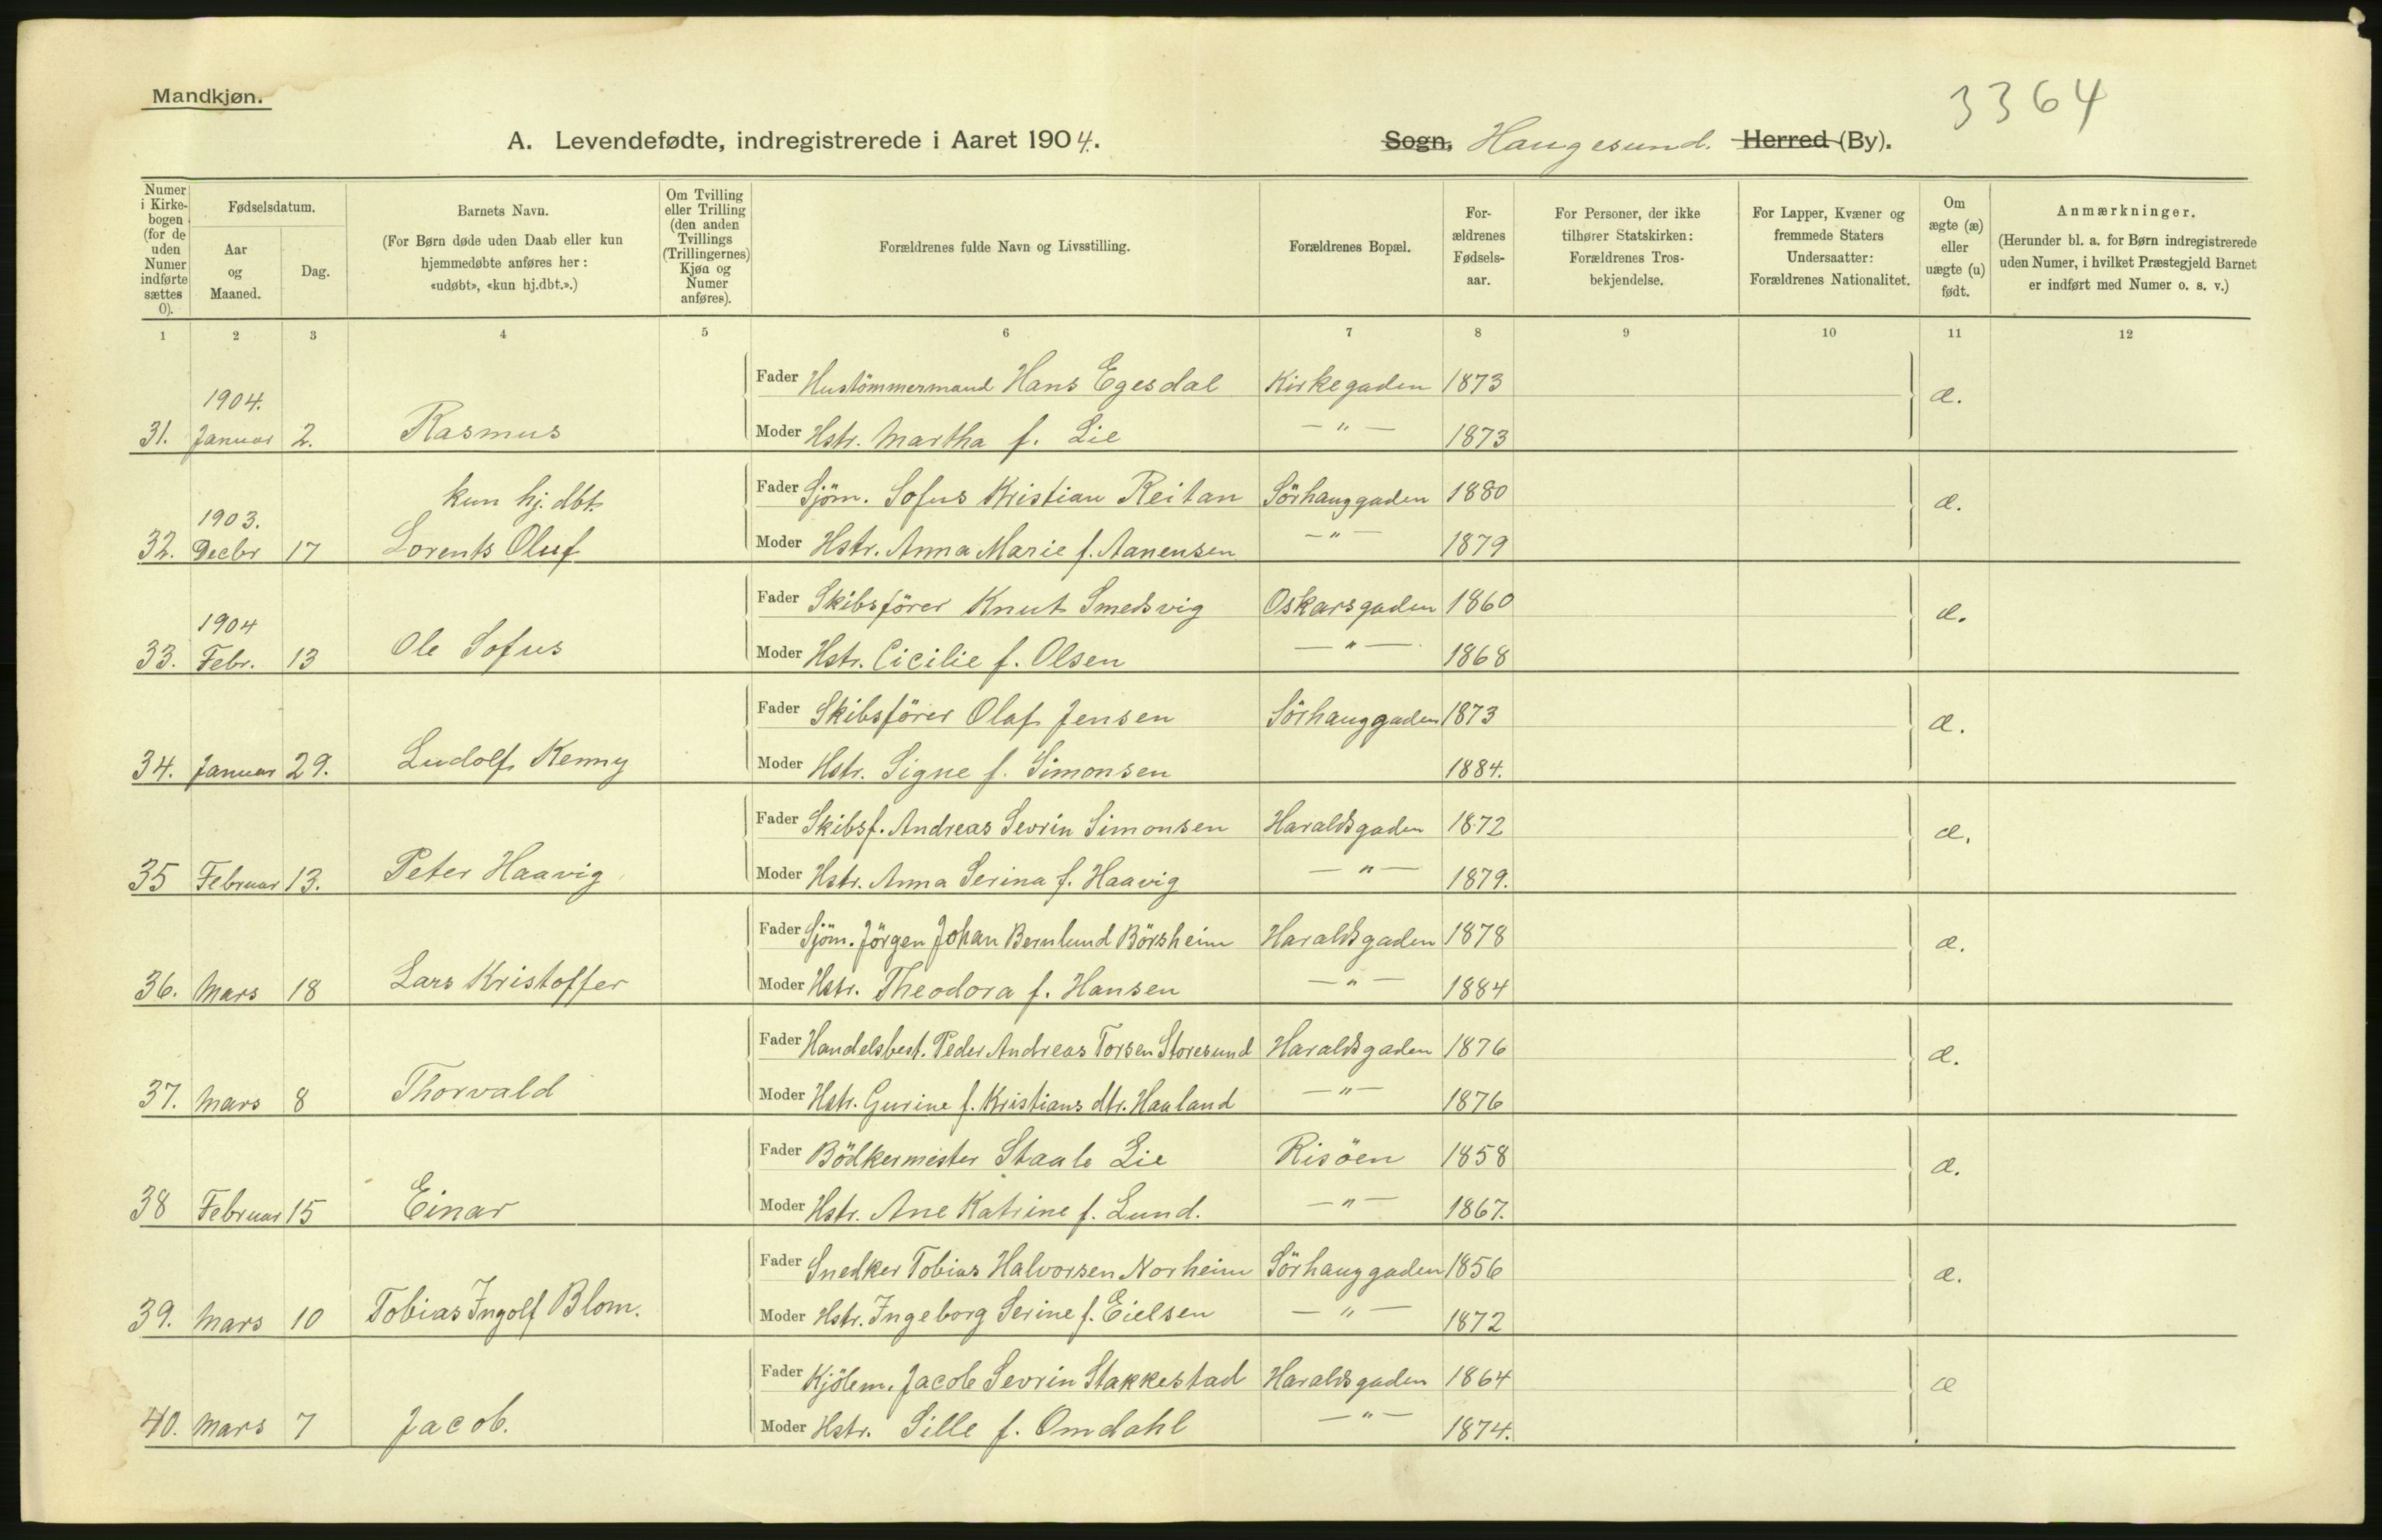 Mandkjøn.
3364
A. Levendefødte, indregistrerede i Aaret 1904.
Sogn, Haugesund. Herred (By).
Numer i Kirkebogen (for de uden Numer indførte sættes 0).
Fødselsdatum.
Aar og Maaned.
Dag.
Barnets Navn.
(For Børn døde uden Daab eller kun hjemmedøbte anføres her: «udøbt», «kun hj.dbt.».)
Om Tvilling eller Trilling (den anden Tvillings (Trillingernes) Kjøn og Numer anføres).
Forældrenes fulde Navn og Livsstilling.
Forældrenes Bopæl.
Forældrenes Fødselsaar.
For Personer, der ikke tilhører Statskirken: Forældrenes Trosbekjendelse.
For Lapper, Kvæner og fremmede Staters Undersaatter: Forældrenes Nationalitet.
Om ægte (æ) eller uægte (u) født.
Anmærkninger.
(Herunder bl. a. for Børn indregistrerede uden Numer, i hvilket Præstegjeld Barnet er indført med Numer o. s. v.)
1 2 3 4 5 6 7 8 9 10 11 12
Fader Hustömmermand Hans Egesdal Kirkegaden 1873
1904. æ.
31. Januar 2. Rasmus Moder Hstr. Martha f. Lie — " — 1873
kun hj. dbt. Fader Sjöm. Sofus Kristian Reitan Sörhauggaden 1880
1903. æ.
32. Decbr 17 Lorents Oluf Moder Hstr. Anna Marie f. Aanensen — " — 1879
Fader Skibsförer Knut Smedsvig Oskarsgaden 1860
1904 æ.
33. Febr. 13 Ole Sofus Moder Hstr. Cicilie f. Olsen — " — 1868
Fader Skibsförer Olaf Jensen Sörhauggaden 1873
æ.
34. Januar 29. Ludolf Kenny Moder Hstr. Signe f. Simonsen 1884.
Fader Skibsf. Andreas Sevrin Simonsen Haraldsgaden 1872
æ.
35 Februar 13. Peter Haavig Moder Hstr. Anna Serina f. Haavig — " — 1879.
Fader Sjöm. Jörgen Johan Bernlund Börsheim Haraldsgaden 1878
æ.
36. Mars 18 Lars Kristoffer Moder Hstr. Theodora f. Hansen — " — 1884
Fader Handelsbest. Peder Andreas Torsen Storesund Haraldsgaden 1876
æ.
37. Mars 8 Thorvald Moder Hstr. Gurine f. Kristians dtr. Haaland — " — 1876
Fader Bödkermester Staale Lie Risöen 1858
æ.
38 Februar 15 Einar Moder Hstr. Ane Katrine f. Lund. — " — 1867.
Fader Snedker Tobias Halvorsen Norheim Sörhauggaden 1856
æ.
39. Mars 10 Tobias Ingolf Blom. Moder Hstr. Ingeborg Serine f. Eielsen — " — 1872
Fader Kjölem. Jacob Sevrin Stakkestad Haraldsgaden 1864
æ
40. Mars 7 Jacob. Moder Hstr. Sille f. Omdahl — " — 1874.